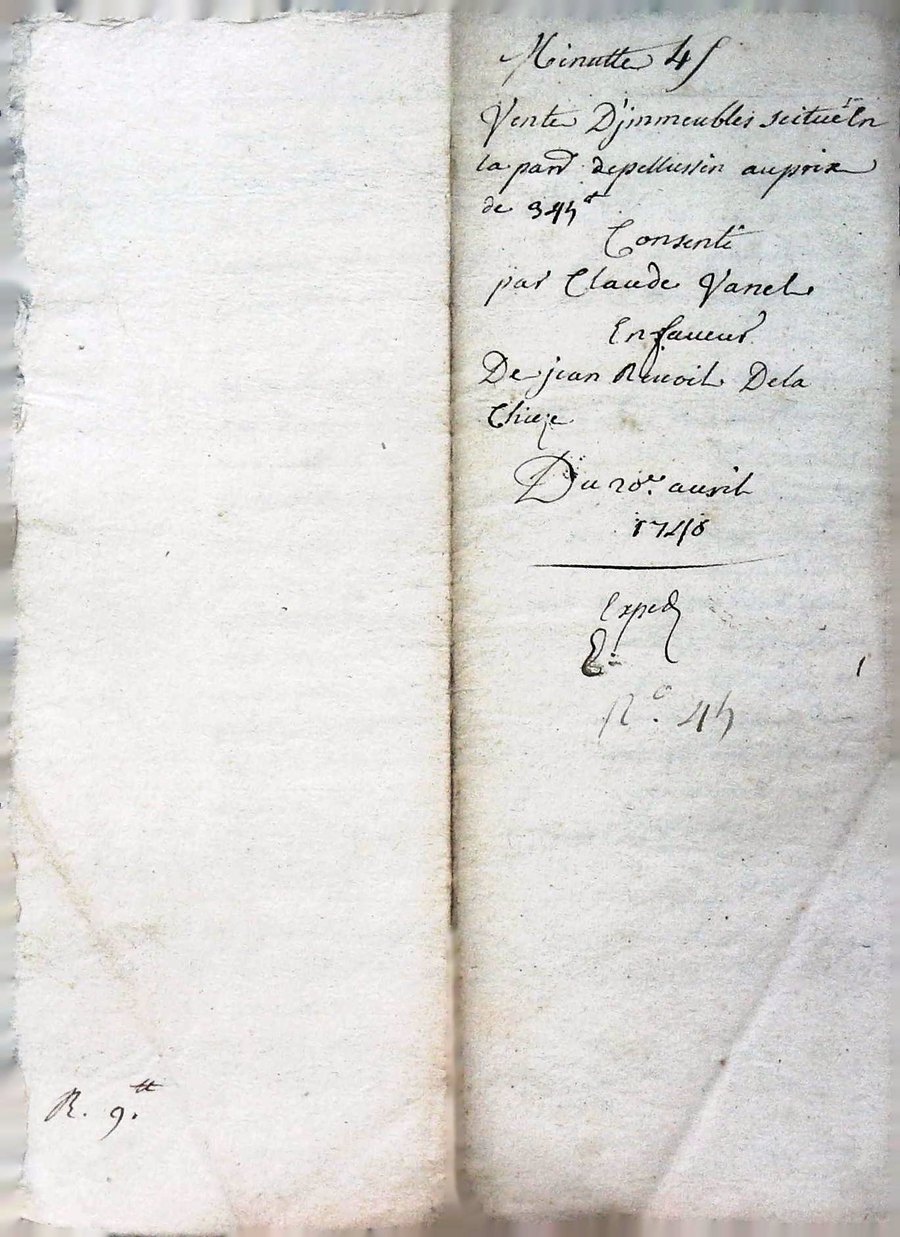 Minutte 45
Vente D'jmmeubles scitués En
la parr depellussin auprix
de 345tt
Consenti
par Claude Vanel
En faveur
De jean Benoit Dela
Chieze
Du 20e. avril
1748
Exped
E.
No. 45
R. 9.tt